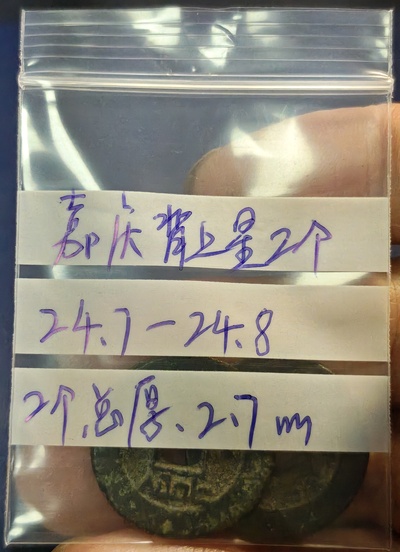 嘉庆背上星2个
24.7-24.8
2个总厚、2.7m